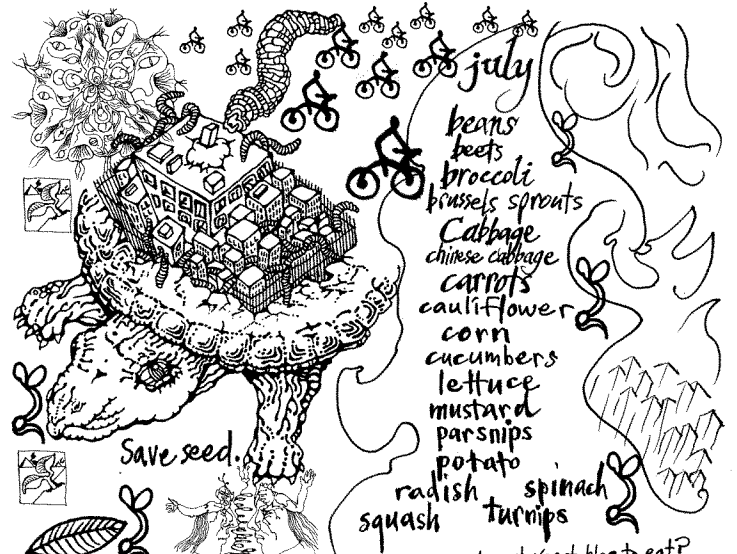 july
beans
beets
broccoli
brussels sprouts
Cabbage
chinese cabbage
carrots
cauliflower
corn
cucumbers
lettuce
mustard
parsnips
potato
radish spinach
squash turnips
Save seed.
to eat?